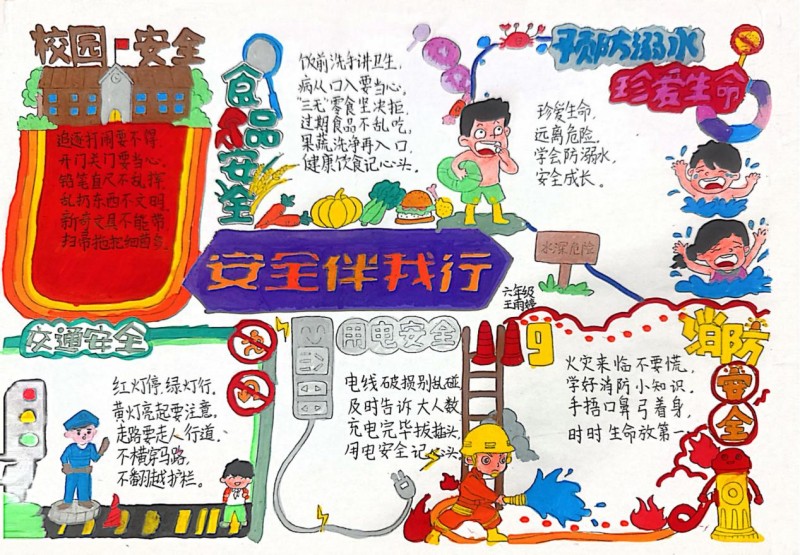 校园安全
追逐打闹要不得
开门关门要当心,
铅笔直尺不乱挥
乱扔东西不文明,
新奇文具不能带
扫帚拖把细菌多.
食品安全
饮前洗手讲卫生,
病从口入要当心,
"三无"零食坚决拒,
过期食品不乱吃,
果蔬洗净再入口,
健康饮食记心头.
预防溺水
珍爱生命
珍爱生命,
远离危险,
学会防溺水,
安全成长。
水深危险
安全伴我行
六年级
王雨婷
交通安全
红灯停,绿灯行,
黄灯亮起要注意,
走路要走人行道,
不横穿马路,
不翻越护栏。
用电安全
电线破损别乱碰
及时告诉大人数,
充电完毕拔插头,
用电安全记心头.
119
消防安全
火灾来临不要慌,
学好消防小知识.
手捂口鼻弓着身,
时时生命放第一.